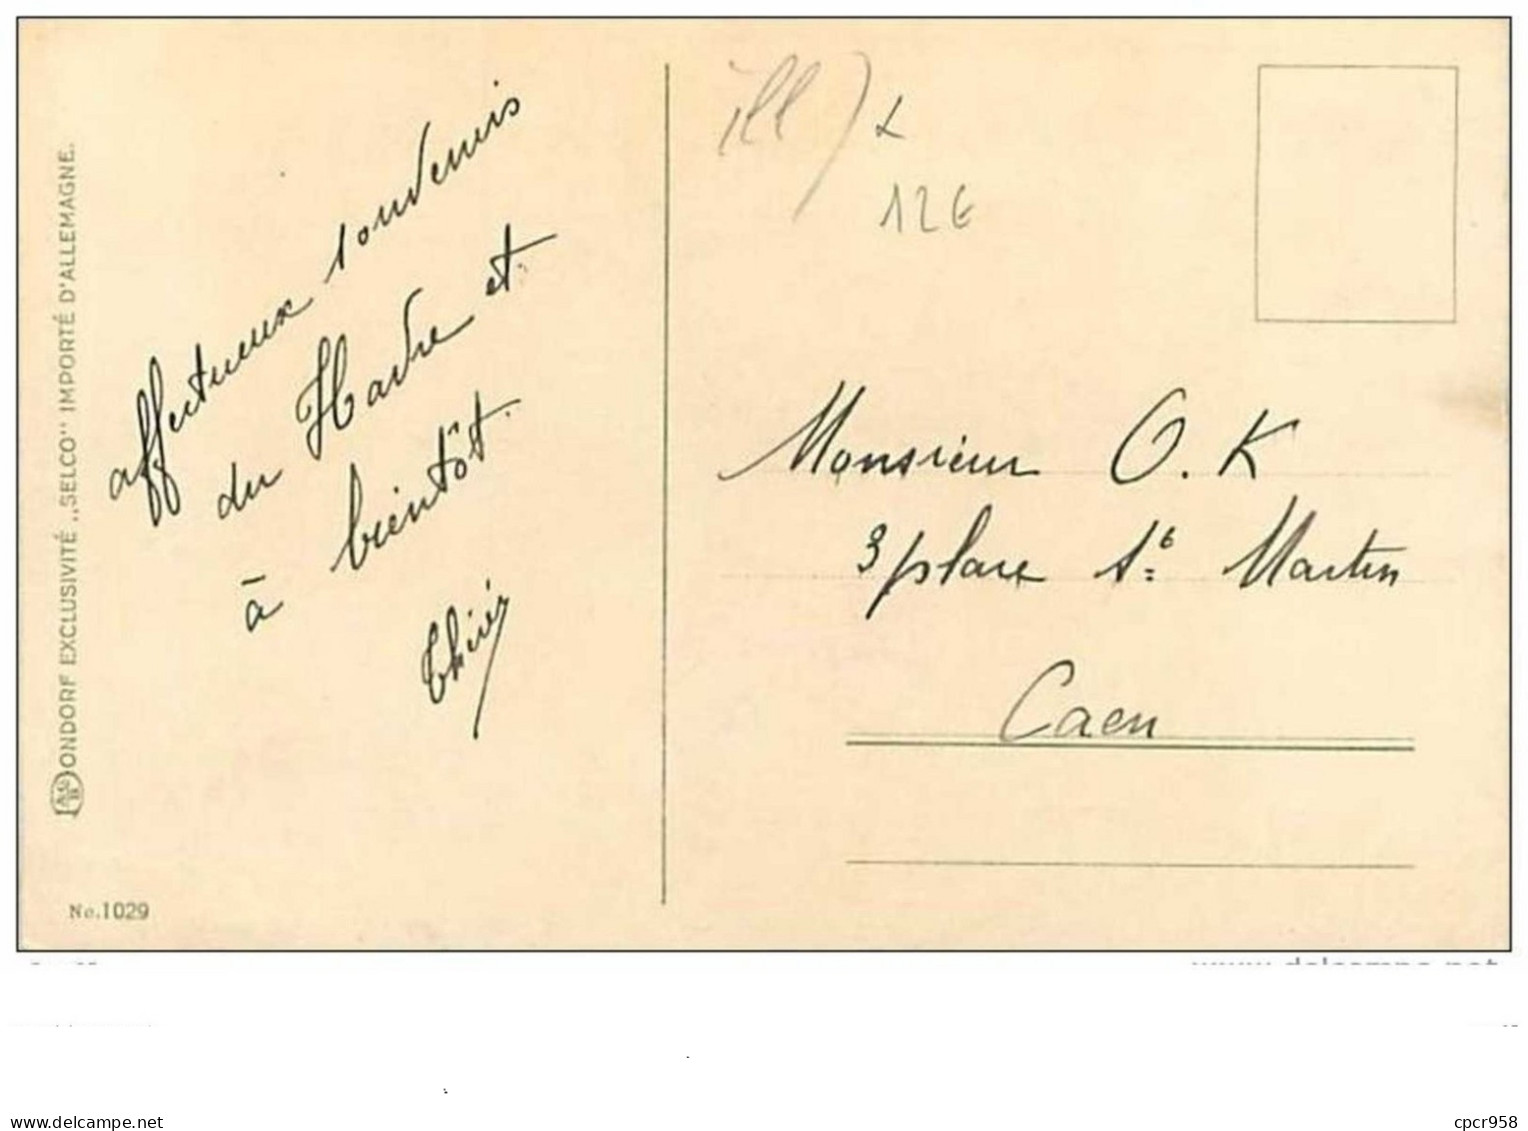 ONDORF EXCLUSIVITÉ „SELCO" IMPORTÉ D'ALLEMAGNE.
affectueux souvenirs
du Havre et
à bientôt.
No.1029
ill)
12€
Monsieur O. K
3 place St Martin
Caen
www.delcampe.net
delcampe.net
cpcr958